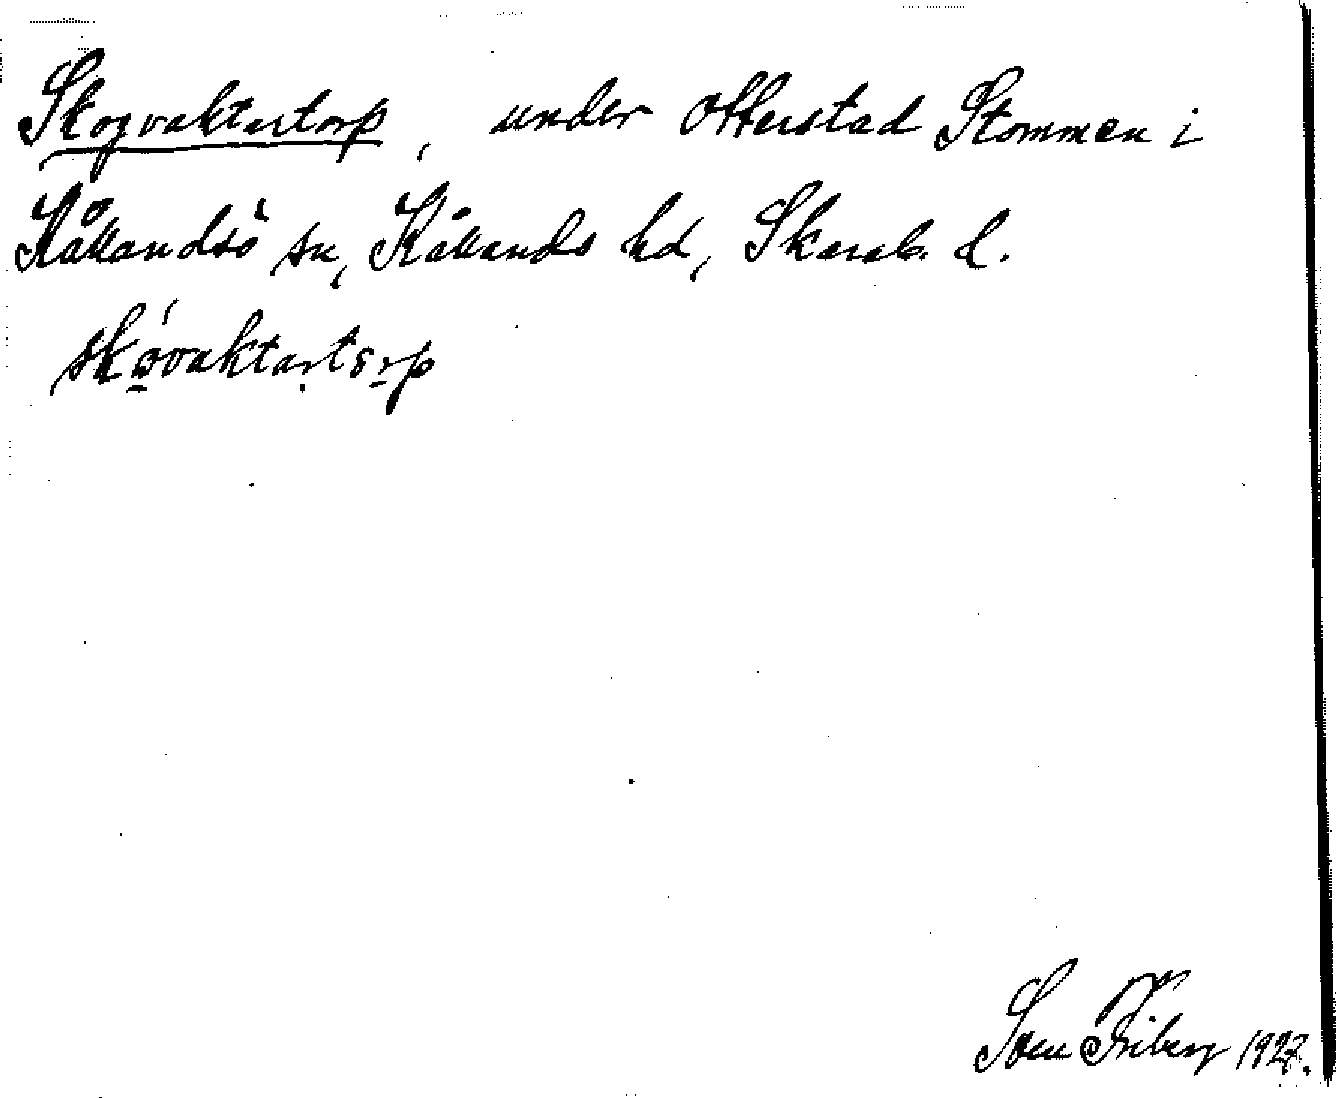 Skogvaktartorp, under Otterstad Stommen i
Kållandsö sn, Kållands hd, Skarab. l.
skòvaktartorp
Sven Friberg 1927.